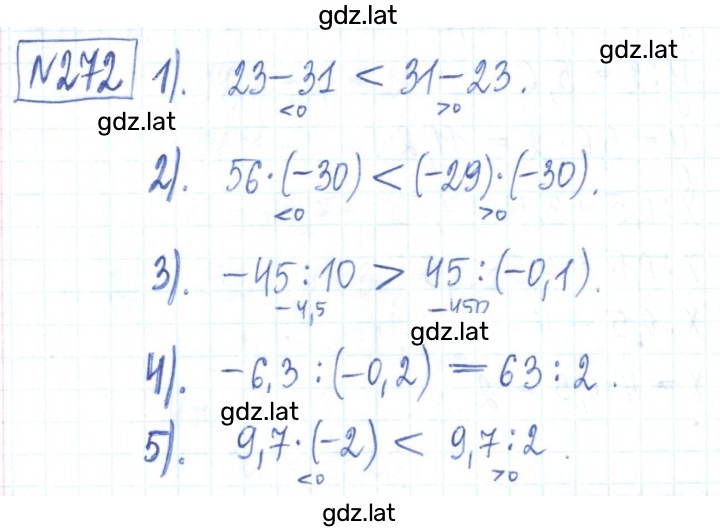 gdz.lat
gdz.lat
№272 1). 23-31 < 31-23.
<0 >0
gdz.lat
2). 56·(-30) < (-29)·(-30).
<0 >0
3). -45:10 > 45:(-0,1).
-4,5 -450
gdz.lat
4). -6,3:(-0,2) = 63:2.
gdz.lat
5). 9,7·(-2) < 9,7:2.
<0 >0
gdz.lat